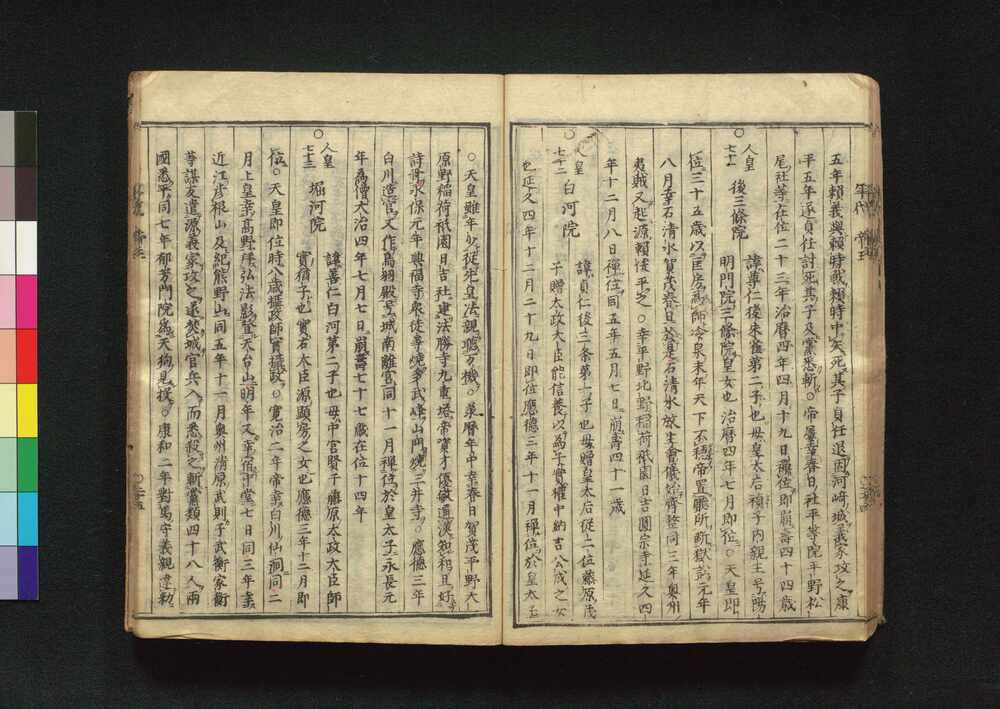 五年頼義與頼時戦頼時中矢死其子貞任退因河崎城義家攻之康
平五年逐貞任討死其子及黨悉斬。帝屢幸春日社平等院平野松
尾社等在位二十三年治暦四年四月十九日禪位即崩壽四十四歳
○人皇七十一 後三條院 諱尊仁後朱雀第二子也母皇太后禎子内親王号陽
明門院三條院皇女也治暦四年七月即位。天皇即
位三十五歳以匡房為師冷泉末年天下不穏帝置廳所断獄訟元年
八月幸石清水賀茂春日於是石清水放生會儀始齊整同三年奥州
夷賊又起源頼俊平之。幸平野北野稲荷祇園日吉圓宗寺延久四
年十二月八日禪位同五年五月七日崩壽四十一歳
○人皇七十二 白河院 諱貞仁後三条第一子也母贈皇太后従二位藤原茂
子贈太政大臣能信養以為子實權中納言公成之女
也延久四年十二月二十九日即位應德三年十一月禪位於皇太子
○天皇雖年少從先皇法親聴万機。承暦年中幸春日賀茂平野大
原野稲荷祇園日吉社建法勝寺九重塔帝資才優敏通漢和且好
詩哥永保元年興福寺衆徒等燒多武峰山門燒三井寺。應德三年
白川造宮又作鳥羽殿号城南離宮同十一月禪位於皇太子永長元
年為僧大治四年七月七日崩壽七十七歳在位十四年
○人皇七十三 堀河院 諱善仁白河第二子也母中宮賢子藤原太政大臣師
實猶子也實右大臣源顕房之女也應德三年十二月即
位。天皇即位時八歳攝政師實攝政。寛治二年帝幸白川仙洞同二
月上皇幸高野拜弘法影堂天台山明年又幸宿中堂七日同三年幸
近江彦根山及紀熊野山同五年十一月奥州清原武則子武衡家衡
等謀友遣源義家攻之遂焚城官兵入而悉殺之斬黨類四十八人兩
國悉平同七年郁芳門院為天狗見撲。康和二年對馬守義親違勅